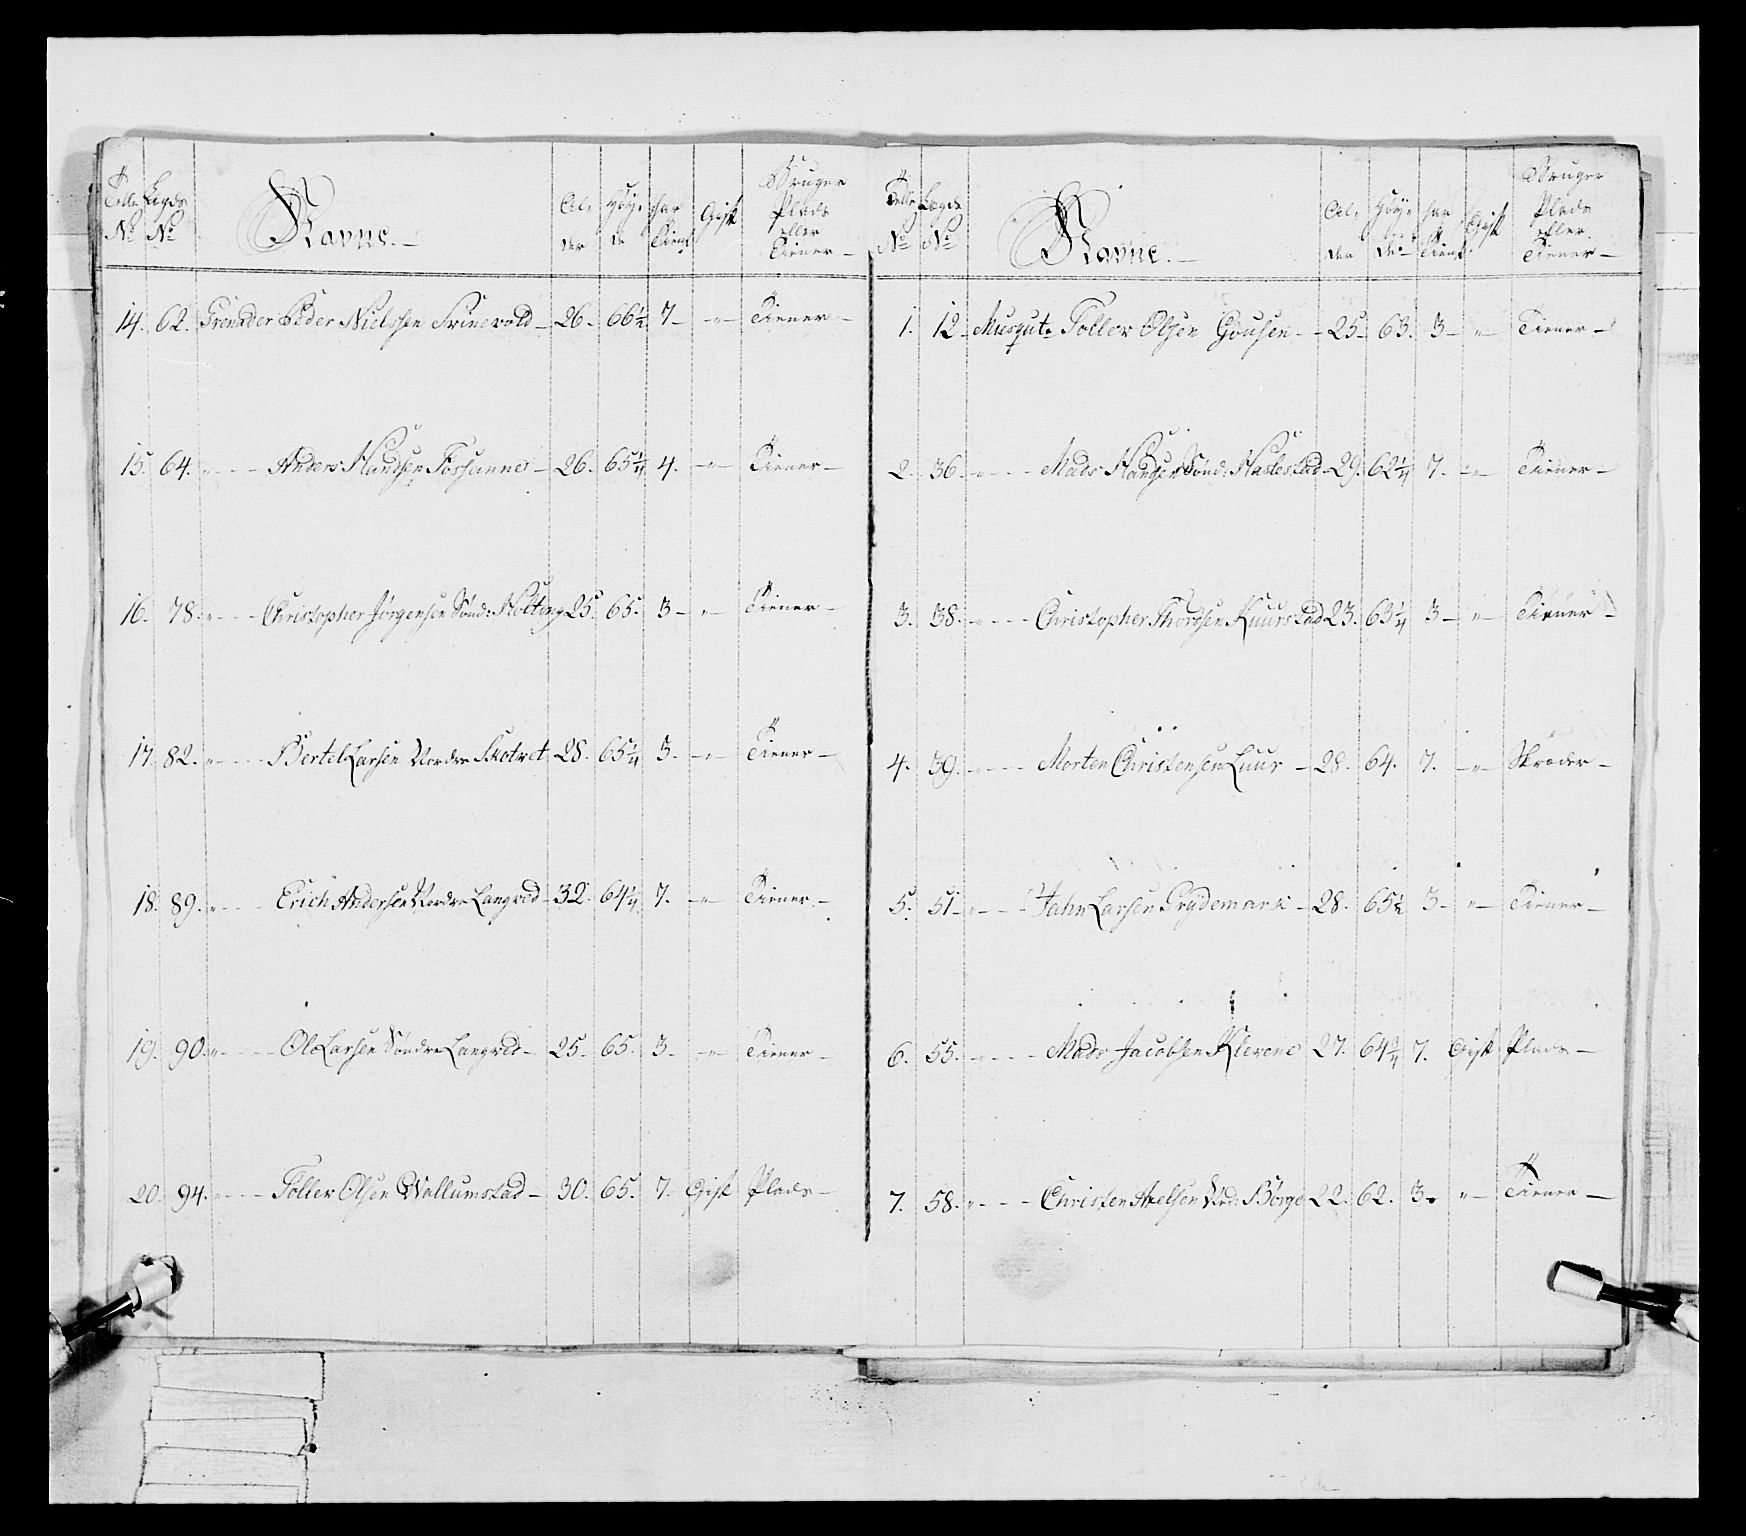 Tolle Legds Navne. Al- Høy- har Gift Bruger
No No der de Tient Plads
eller
Tiener
14. 62. Grenader Peder Nielssen Trinevold 26. 66½ 7 " Tiener
15. 64. " Anders Handsen Tossanne 26. 65¼ 4. " Tiener
16. 78. " Christopher Jørgensen Sønd: Holting 25. 65. 3 " Tiener
17. 82. " Bertel Larsen Nordre Skotvet 28. 65¼ 3. " Tiener
18. 89. " Erich Andersen Nordre Langved 32. 64¼ 7. " Tiener
19. 90. " Ole Larsen Søndre Langved 25. 65. 3. " Tiener
20. 94. " Toller Olsen Wallumstad 30. 65. 7. Gift Plads
Tolle Legds Navne. Al- Høy- har Gift Bruger
No No der de Tient Plads
eller
Tiener
1. 12 Musqute Toller Olsen Gousen 25. 63. 3 " Tiener
2. 36. " Mads Handsen Sønd: Haslestad 29. 62¼ 7. " Tiener
3. 38. " Christopher Thordsen Kuurstad 23. 63¼ 3 " Tiener
4. 39. " Morten Christensen Luur 28. 64. 7. " Skræder
5. 51 " Jahn Larsen Grydemark 28. 65½ 3 " Tiener
6. 55. " Mads Jacobsen Klevene 27. 64¾ 7. Gift Plads
7. 58. " Christen Axelsen Nrd: Børge 22. 62. 3. " Tiener